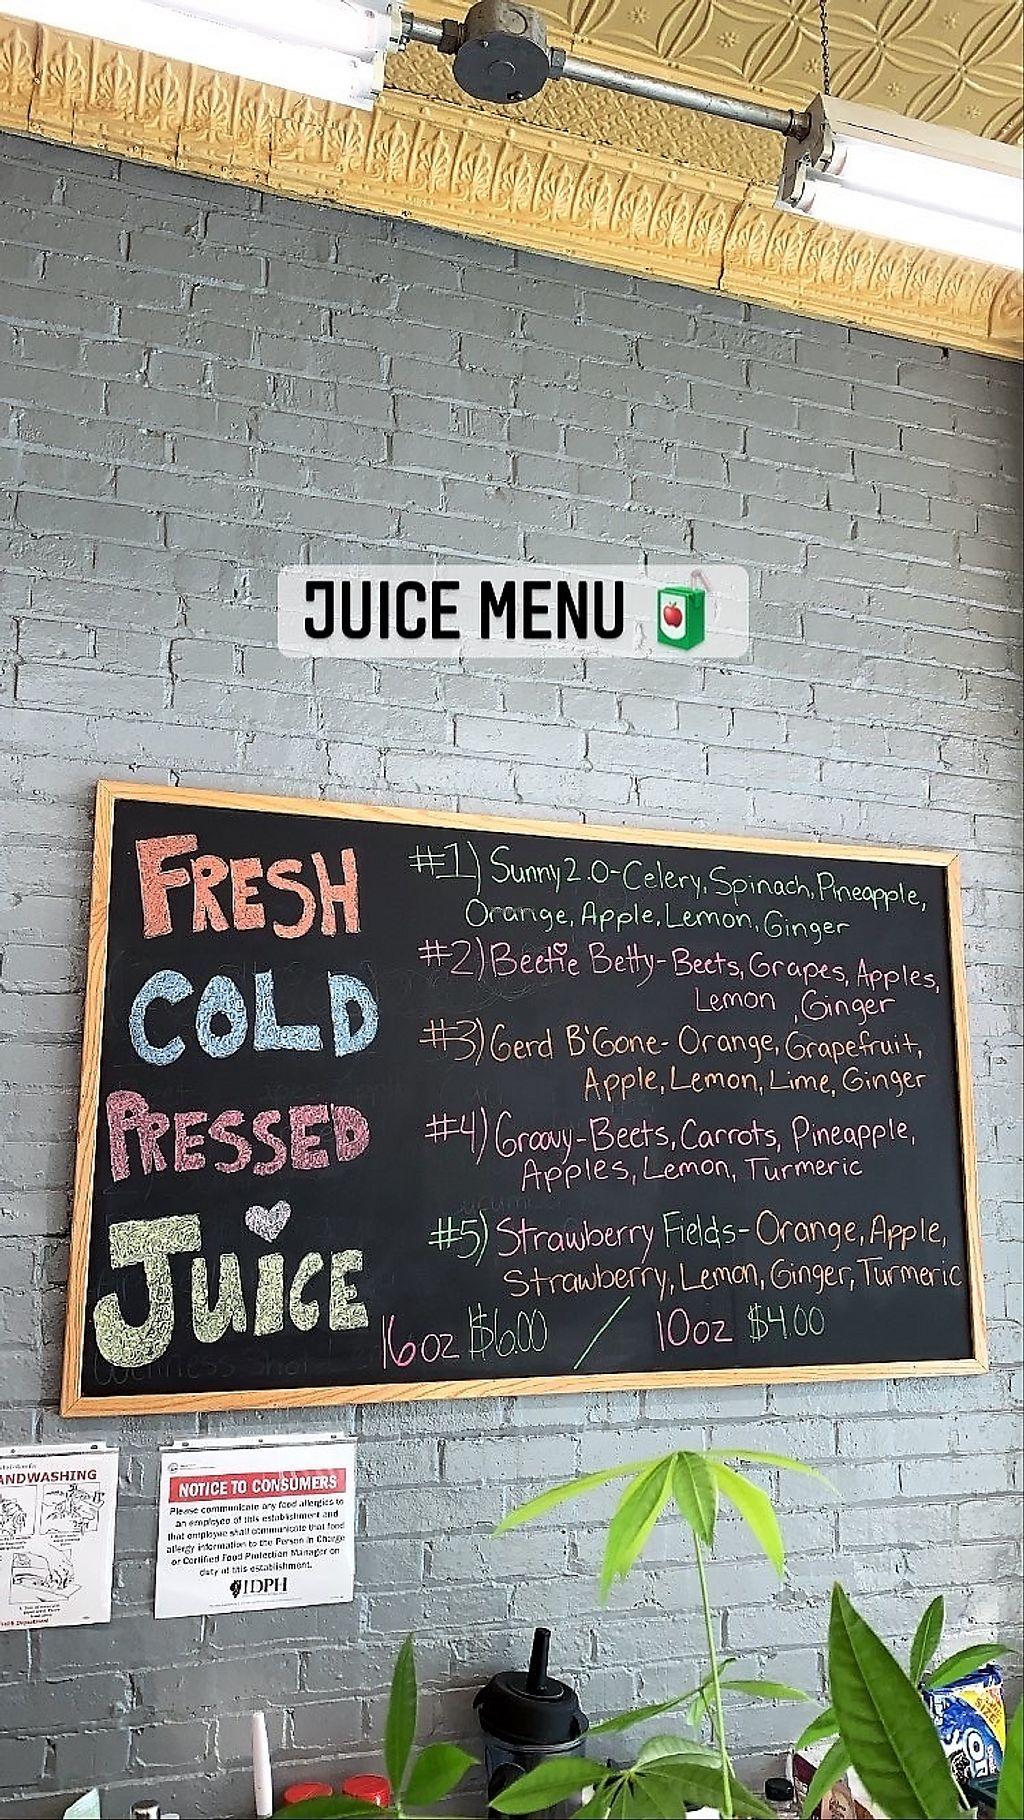 JUICE MENU
FRESH
COLD
PRESSED
JUICE
#1) Sunny 2.0-Celery, Spinach, Pineapple,
Orange, Apple, Lemon, Ginger
#2) Beetie Betty-Beets, Grapes, Apples,
Lemon , Ginger
#3) Gerd B'Gone- Orange, Grapefruit,
Apple, Lemon, Lime, Ginger
#4) Groovy-Beets, Carrots, Pineapple,
Apples, Lemon, Turmeric
#5) Strawberry Fields-Orange, Apple,
Strawberry, Lemon, Ginger, Turmeric
16oz $6.00 / 10oz $4.00
ANDWASHING
NOTICE TO CONSUMERS
Please communicate any food allergies to
an employee of this establishment and
that employee shall communicate that food
allergy information to the Person in Charge
or Certified Food Protection Manager on
duty at this establishment.
IDPH